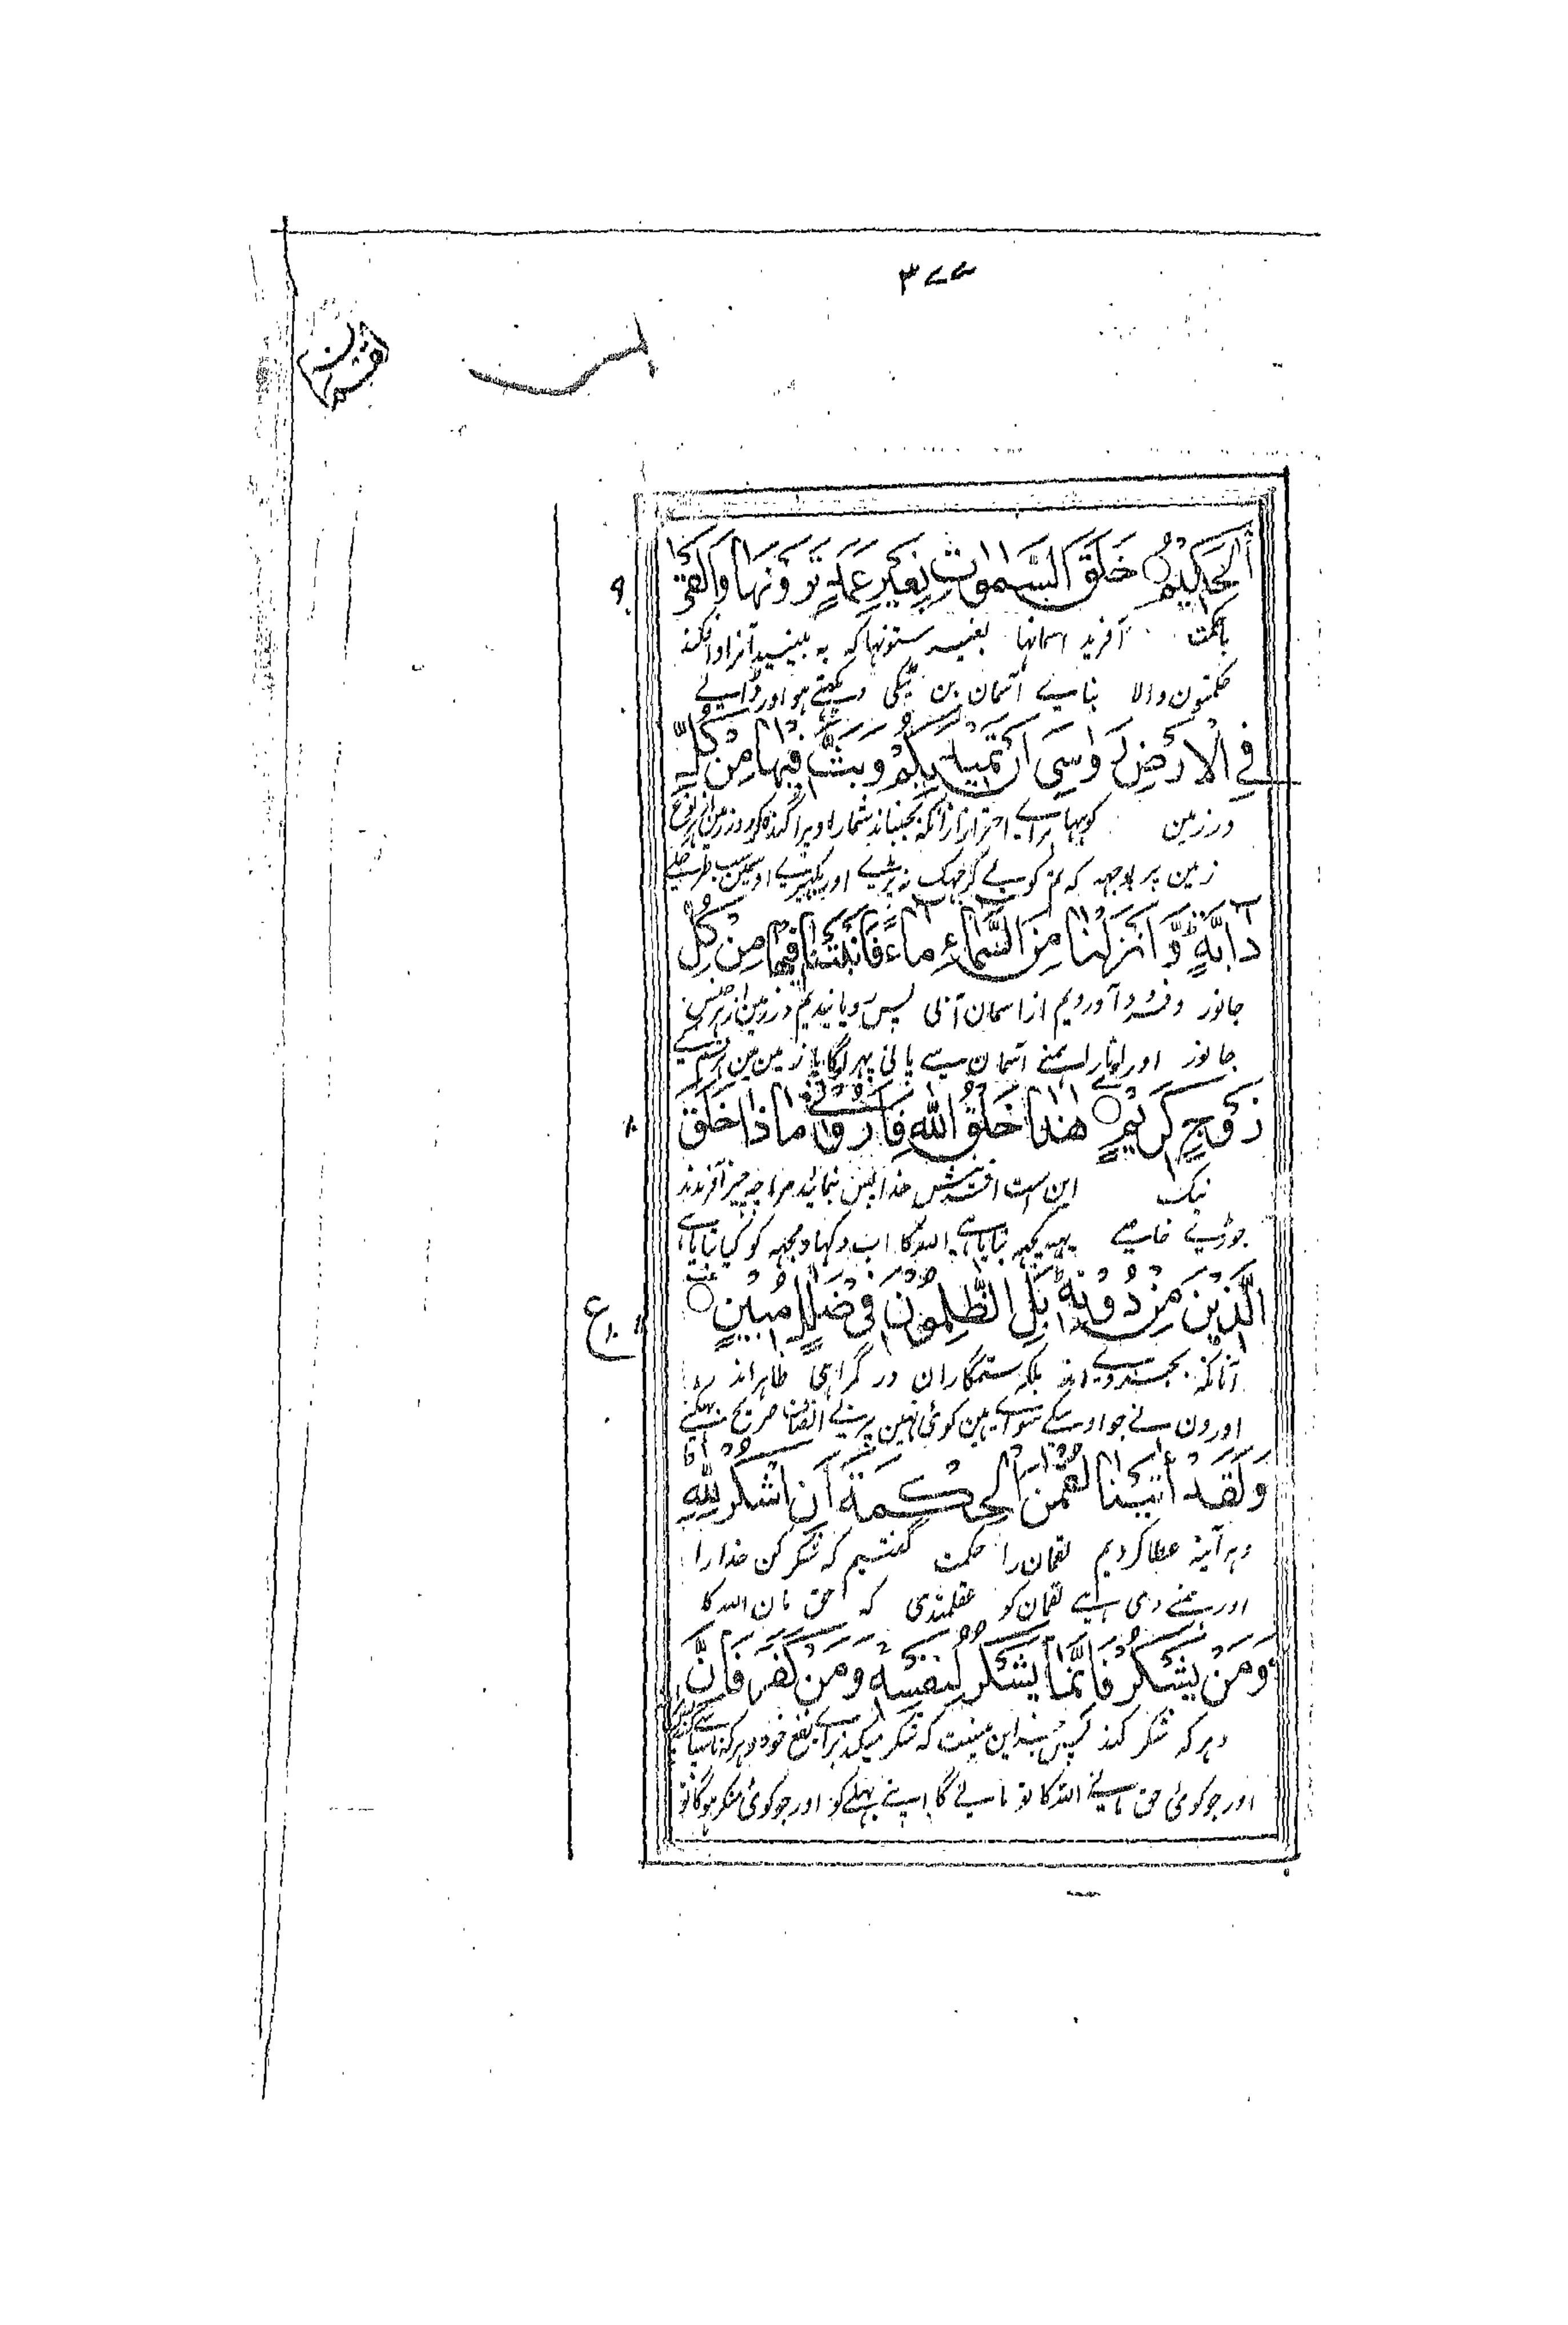 ۳۷۷
لقمٰن
اَلْحَكِيْمُ ○ خَلَقَ السَّمٰوٰتِ بِغَيْرِ عَمَدٍ تَرَوْنَهَا وَاَلْقٰى
۹
باحکمت آفرید اسمانها بغیر ستونها که به بینید آنرا وافکند
حکمتون والا بنایے آسمان بن ٹیکی دیکهتے هو اور ڈالے
فِى الْاَرْضِ رَوَاسِىَ اَنْ تَمِيْدَ بِكُمْ وَبَثَّ فِيْهَا مِنْ كُلِّ
در زمین کوهها براے احتراز ازانکه بجنباند شمارا و پراگنده کرد در زمین از هر نوع
زمین پر بوجهه که تمکو لے کر جهک نه پڑیے اور بکهیرے اوسمین سب طرحکے
دَآبَّةٍ ؕ وَّاَنْزَلْنَا مِنَ السَّمَآءِ مَآءً فَاَنْۢبَتْنَا فِيْهَا مِنْ كُلِّ
جانور وفرود آوردیم از اسمان آبی پس رویانیدیم در زمین از هر جنس
جانور اور اوتارا همنے آسمان سے پانی پهر اوگایا زمین مین هر قسم کے
زَوْجٍ كَرِيْمٍ ○ هٰذَا خَلْقُ اللّٰهِ فَاَرُوْنِىْ مَاذَا خَلَقَ
۱۰
نیک این است افرینش خدا پس بنمائید مرا چه چیز آفریدند
جوڑیے خاصے یهه کچهه بنایا هے الله کا اب دکهاو مجهه کو کیا بنایا هے
الَّذِيْنَ مِنْ دُوْنِهٖ ؕ بَلِ الظّٰلِمُوْنَ فِىْ ضَلٰلٍ مُّبِيْنٍ ○
۱۱ ع ۱۰
آنانکه بجز وے اند بلکه ستمگاران در گمراهی ظاهر اند
اورون نے جو اوسکے سواے هین کوئی نهین پر بے انصاف صریح بهکتے
وَلَقَدْ اٰتَيْنَا لُقْمٰنَ الْحِكْمَةَ اَنِ اشْكُرْ لِلّٰهِ
وهر آینه عطا کردیم لقمان را حکمت گفتیم که شکر کن خدا را
اور همنے دی هے لقمان کو عقلمندی که حق مان الله کا
وَمَنْ يَّشْكُرْ فَاِنَّمَا يَشْكُرُ لِنَفْسِهٖ وَمَنْ كَفَرَ فَاِنَّ
وهر که شکر کند پس جز این نیست که شکر میکند براے نفع خود وهرکه ناسپاسے کند
اور جو کوئی حق مانے الله کا تو مانے گا اپنے بهلے کو اور جو کوئی منکر هوگا تو